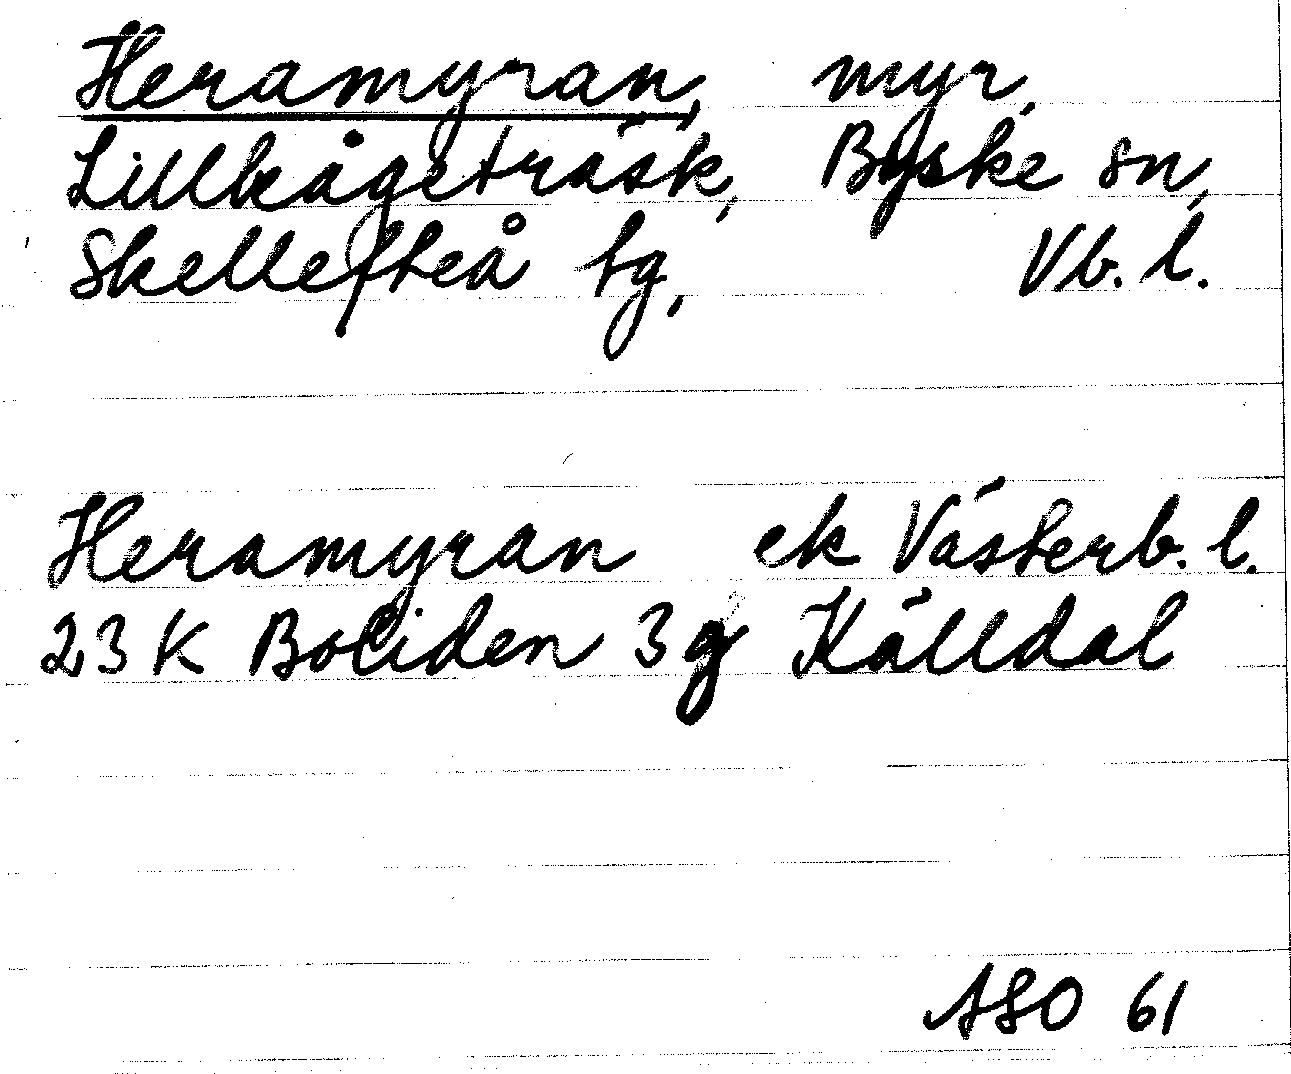 Heramyran, myr,
Lillkågeträsk, Byske sn,
Skellefteå tg, Vb. l.
Heramyran ek Västerb. l.
23 K Boliden 3 g Källdal
ASO 61